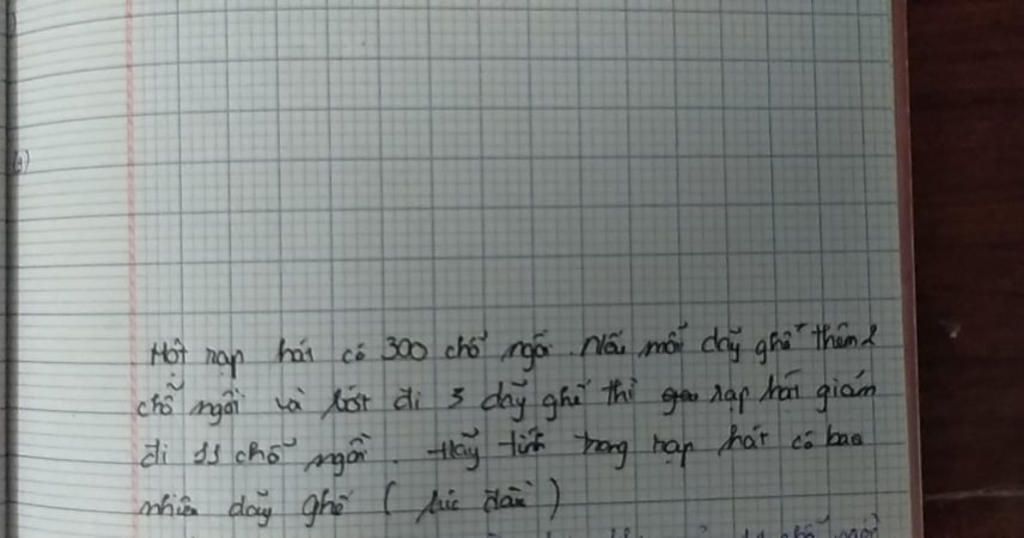 Một rạp hát có 300 chỗ ngồi. Nếu mỗi dãy ghế thêm 2
chỗ ngồi và bớt đi 3 dãy ghế thì rạp hát giảm
đi 11 chỗ ngồi. Hãy tính trong rạp hát có bao
nhiêu dãy ghế (lúc đầu)